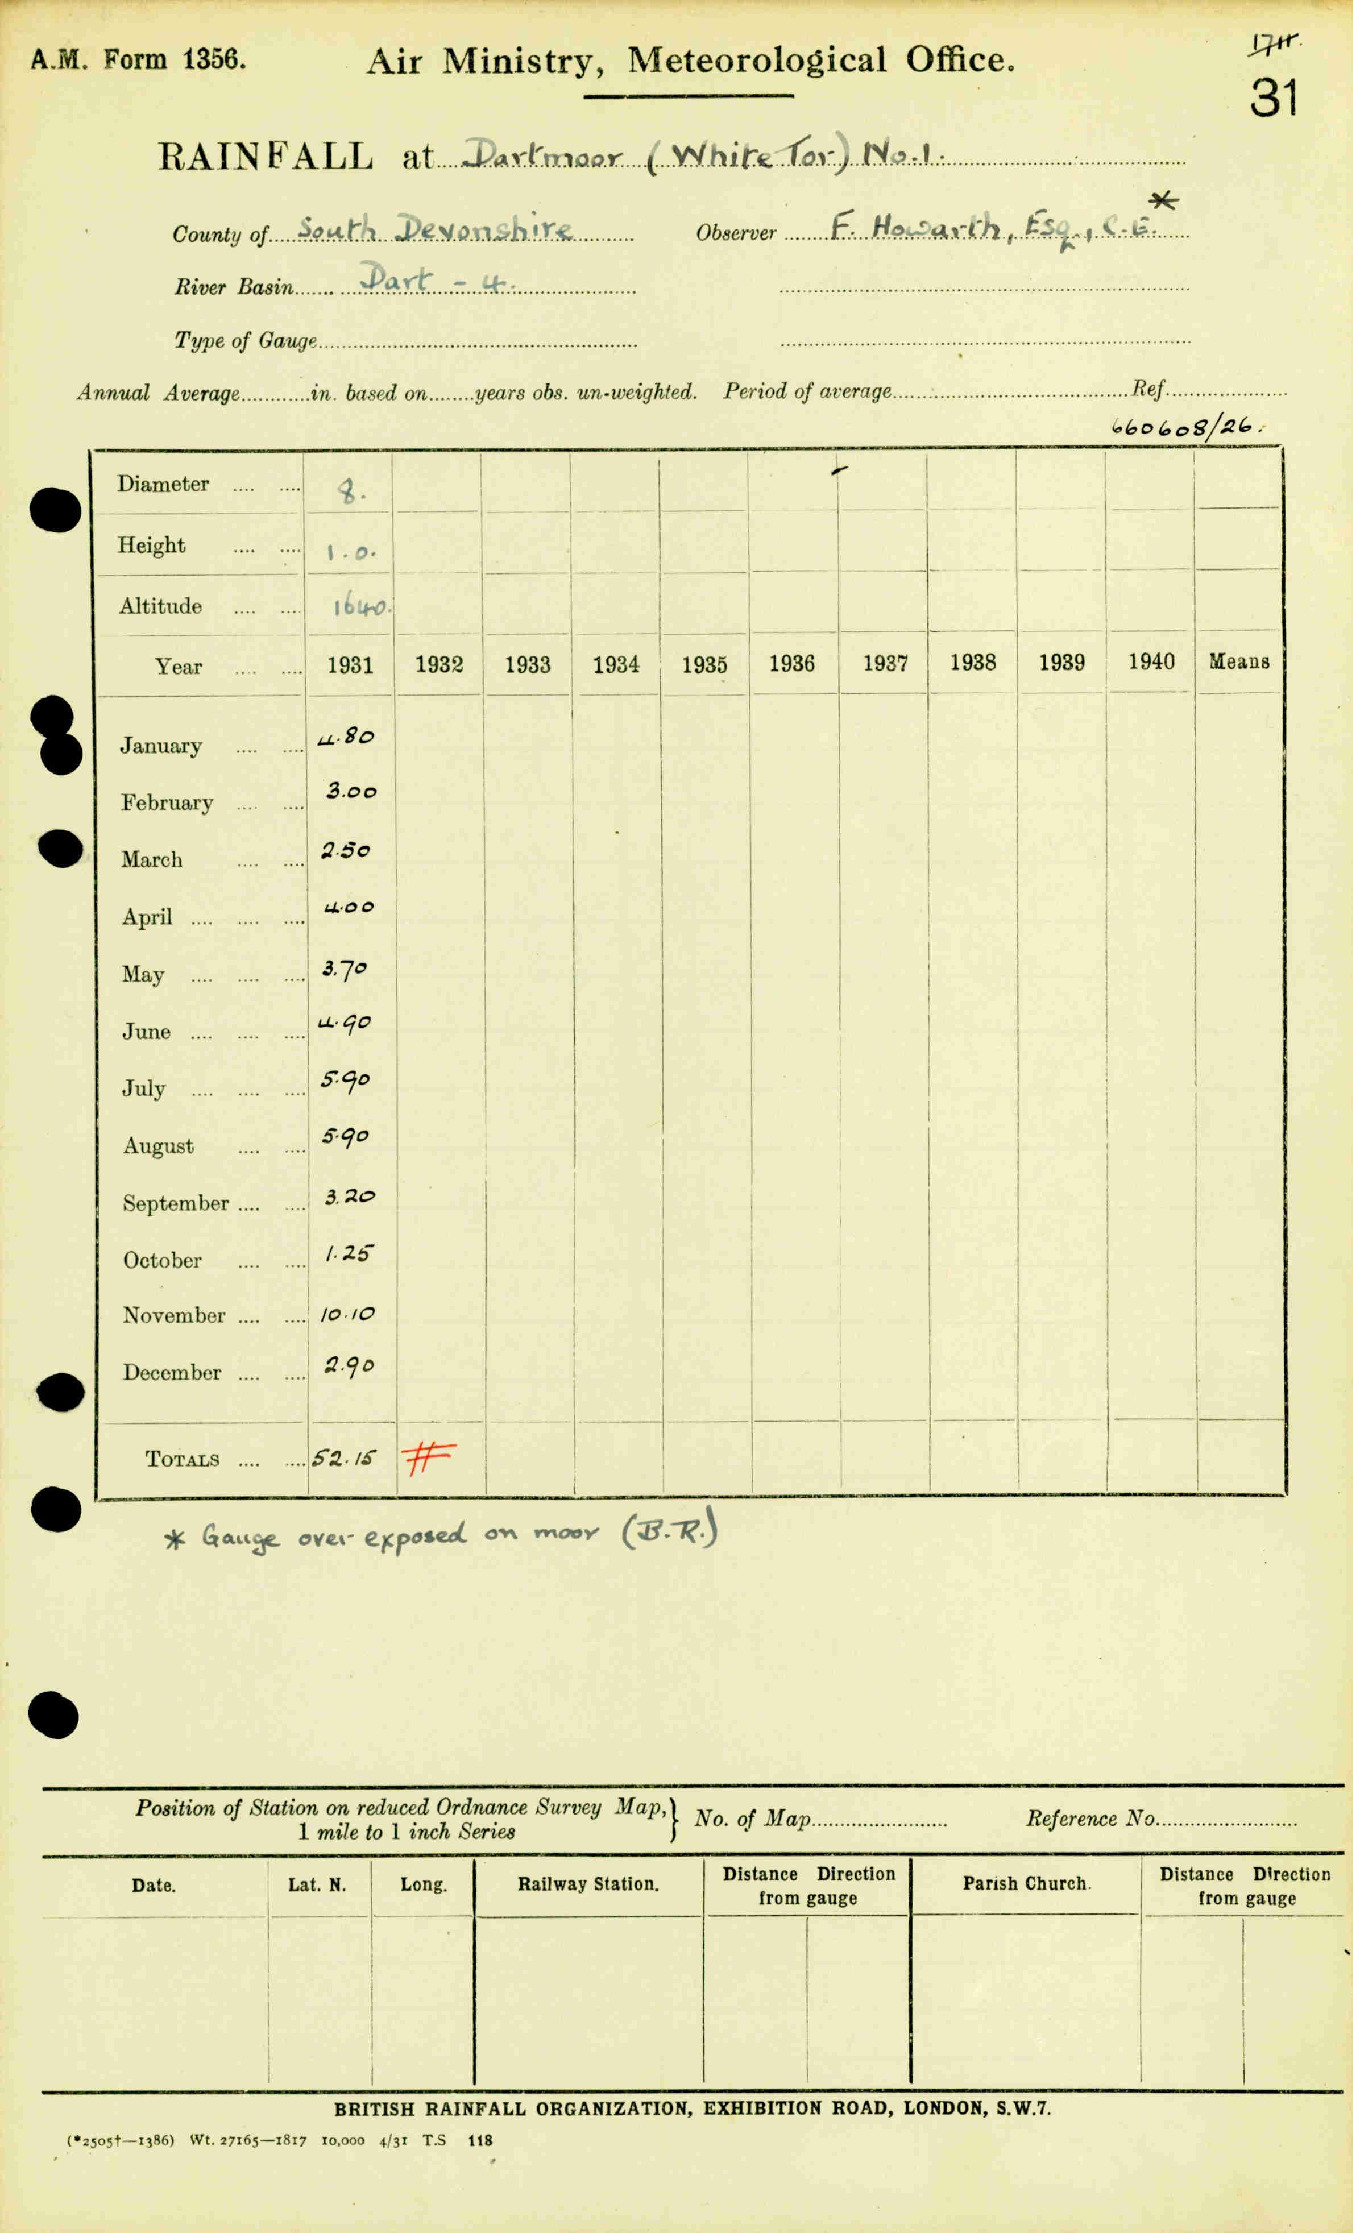 A.M. Form 1356.
Air Ministry, Meteorological Office.
31
RAINFALL at Dartmoor (White Tor) No.1.
County of South Devonshire Observer F. Howarth, Esq., C.E. *
River Basin Dart - 4.
Type of Gauge
Annual Average in. based on years obs. un-weighted. Period of average Ref.
660608/26.
Diameter 8.
Height 1.0.
Altitude 1640.
Year 1931 1932 1933 1934 1935 1936 1937 1938 1939 1940 Means
January 4.80
February 3.00
March 2.50
April 4.00
May 3.70
June 4.90
July 5.90
August 5.90
September 3.20
October 1.25
November 10.10
December 2.90
TOTALS 52.15 #
* Gauge over-exposed on moor (B.R.)
Position of Station on reduced Ordnance Survey Map, } No. of Map Reference No.
1 mile to 1 inch Series
Date. Lat. N. Long. Railway Station. Distance Direction from gauge Parish Church. Distance Direction from gauge
BRITISH RAINFALL ORGANIZATION, EXHIBITION ROAD, LONDON, S.W.7.
(*2505†—1386) Wt. 27165—1817 10,000 4/31 T.S 118